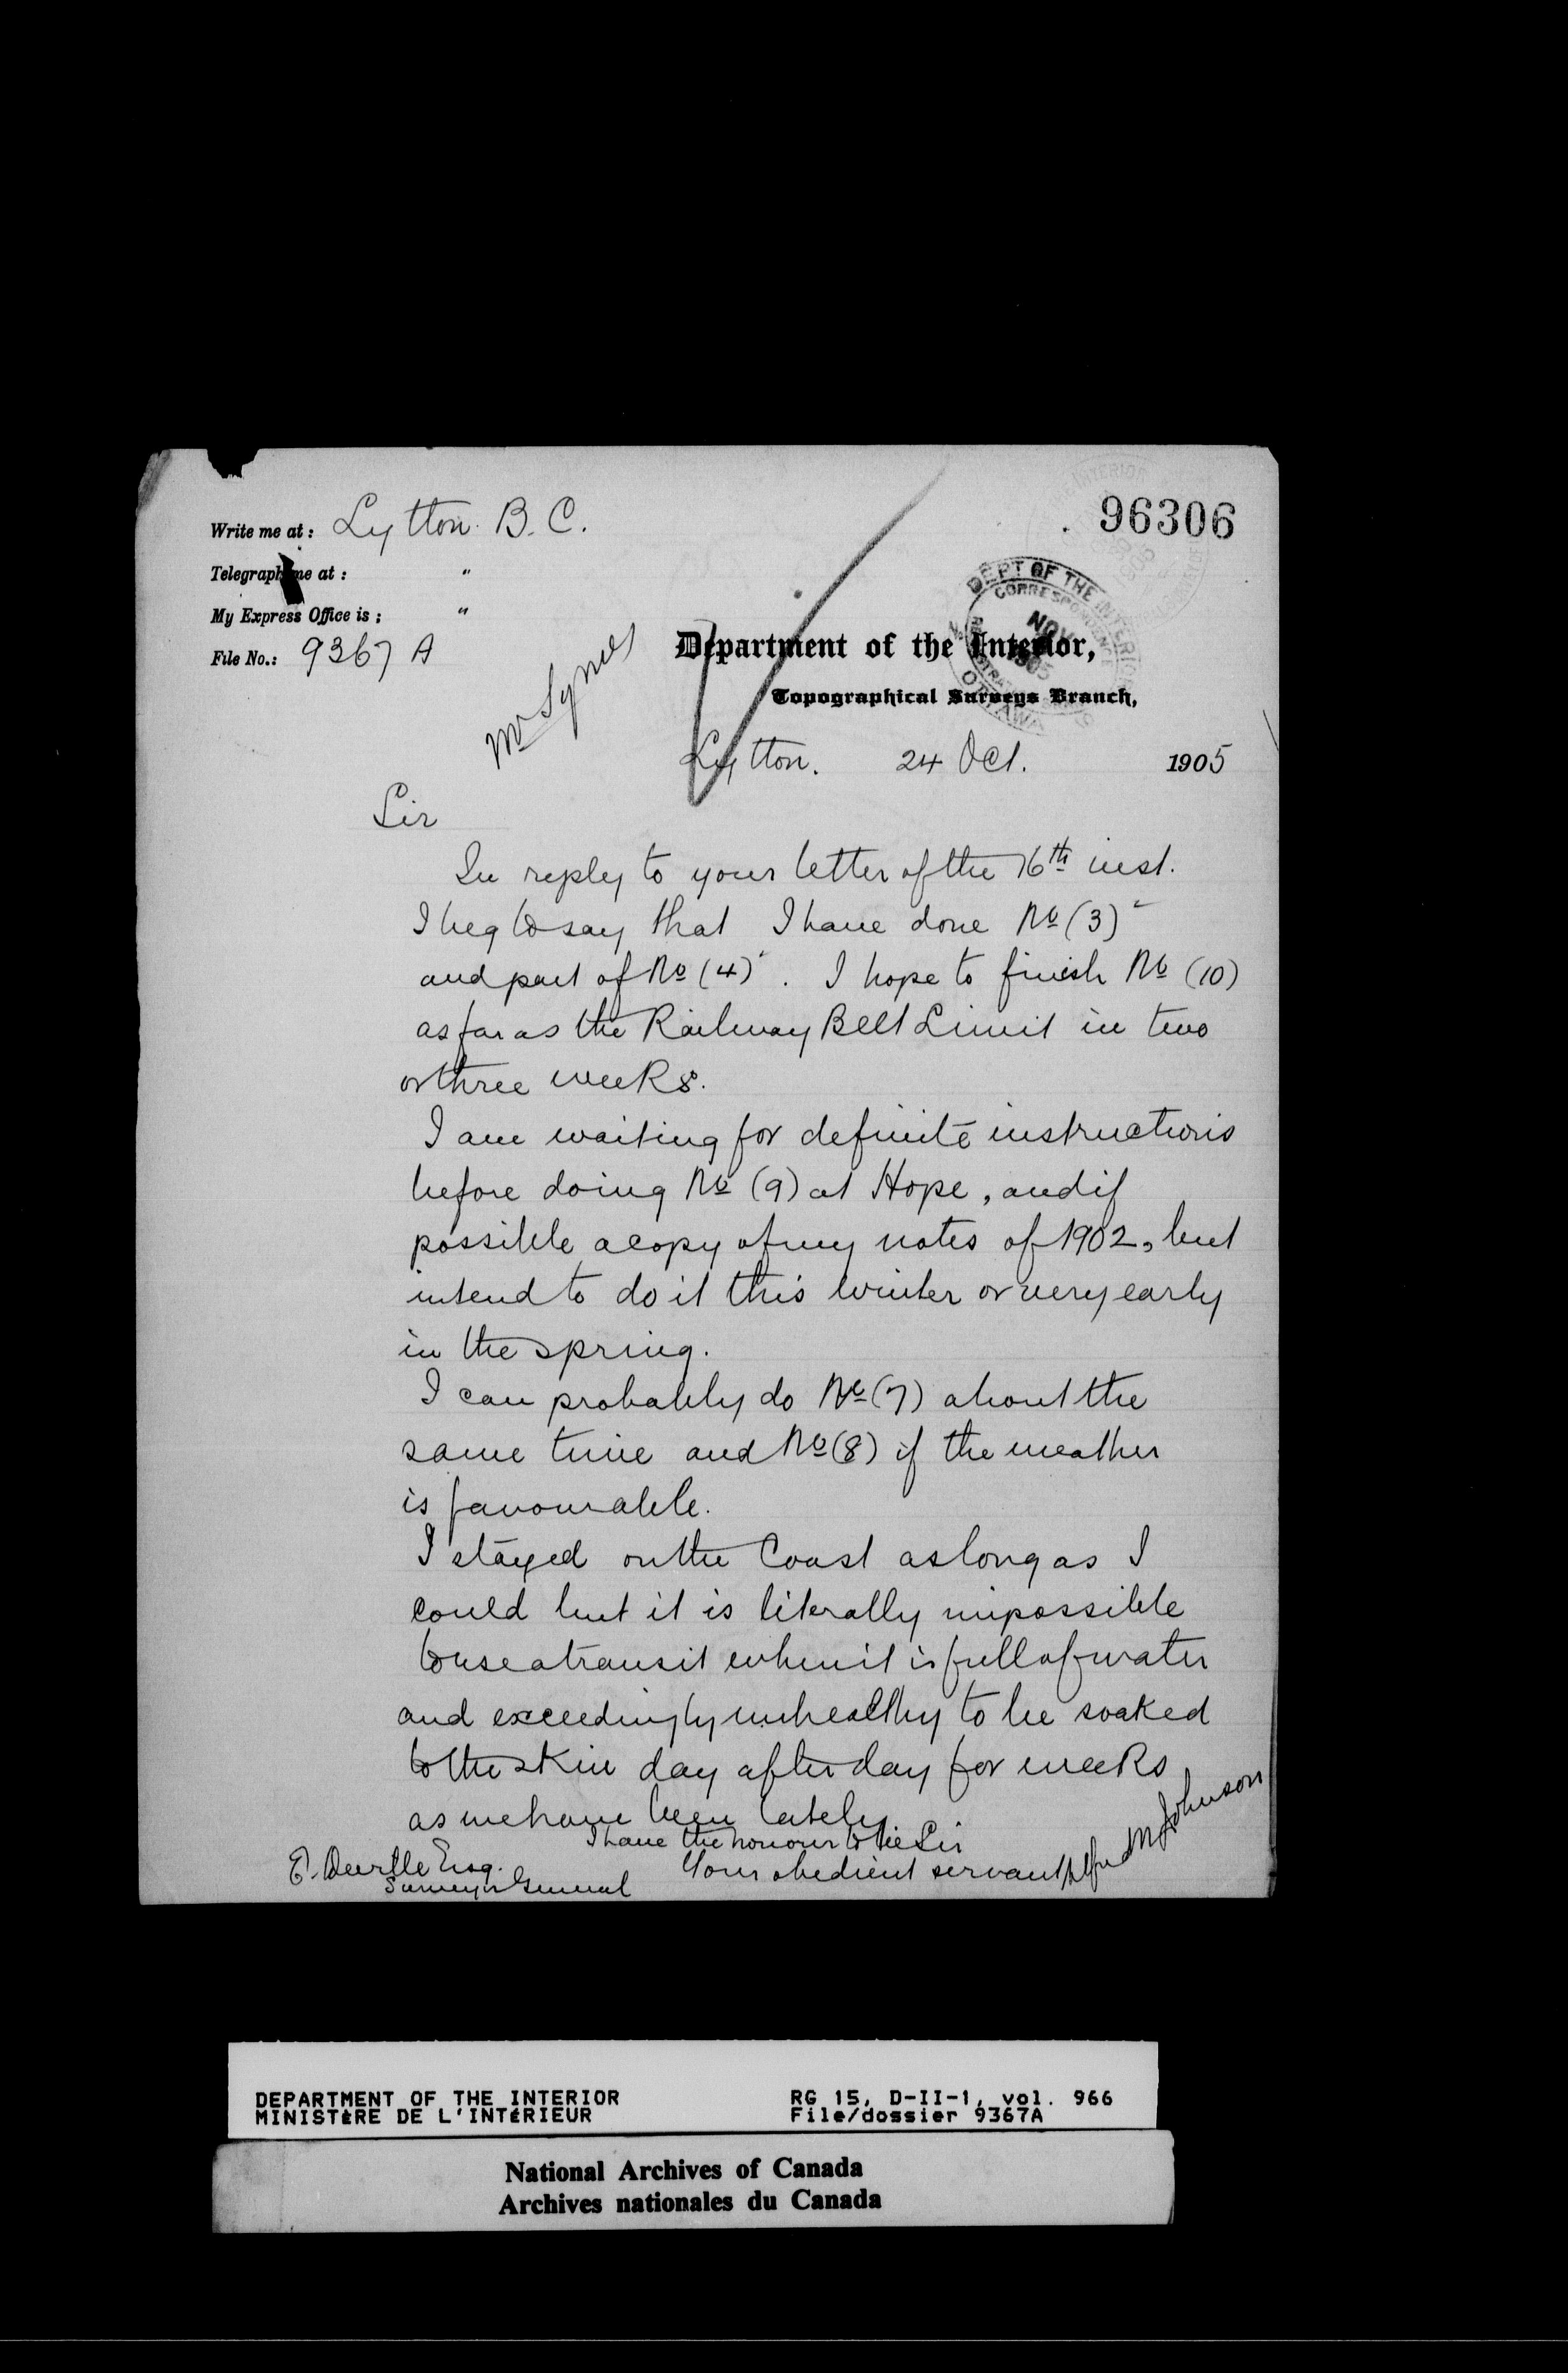 96306
Write me at: Lytton. B. C.
Telegraph me at: "
My Express Office is; "
File No.: 9367 A
Mr Symes
DEPT OF THE INTERIOR
CORRESPONDENCE
NOV
1905
OTTAWA
Department of the Interior,
Topographical Surveys Branch,
Lytton. 24 Oct. 1905
Sir
In reply to your letter of the 16th inst.
I beg to say that I have done No (3)
and part of No (4). I hope to finish No (10)
as far as the Railway Belt Limit in two
or three weeks.
I am waiting for definite instructions
before doing No (9) at Hope, and if
possible a copy of my notes of 1902, but
intend to do it this winter or very early
in the spring.
I can probably do No (7) about the
same time and No (8) if the weather
is favourable.
I stayed on the Coast as long as I
could but it is literally impossible
to use a transit when it is full of water
and exceedingly unhealthy to be soaked
to the skin day after day for weeks
as we have been lately.
I have the honour to be Sir
Your obedient servant Alfred M Johnson
E. Deville Esq.
Surveyor General
DEPARTMENT OF THE INTERIOR RG 15, D-II-1, vol. 966
MINISTÈRE DE L'INTÉRIEUR File/dossier 9367A
National Archives of Canada
Archives nationales du Canada